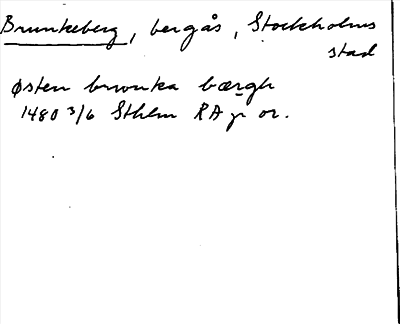 Brunkeberg, bergås, Stockholms
stad
østen brwnka bærgh
1480 3/6 Sthlm RA p or.